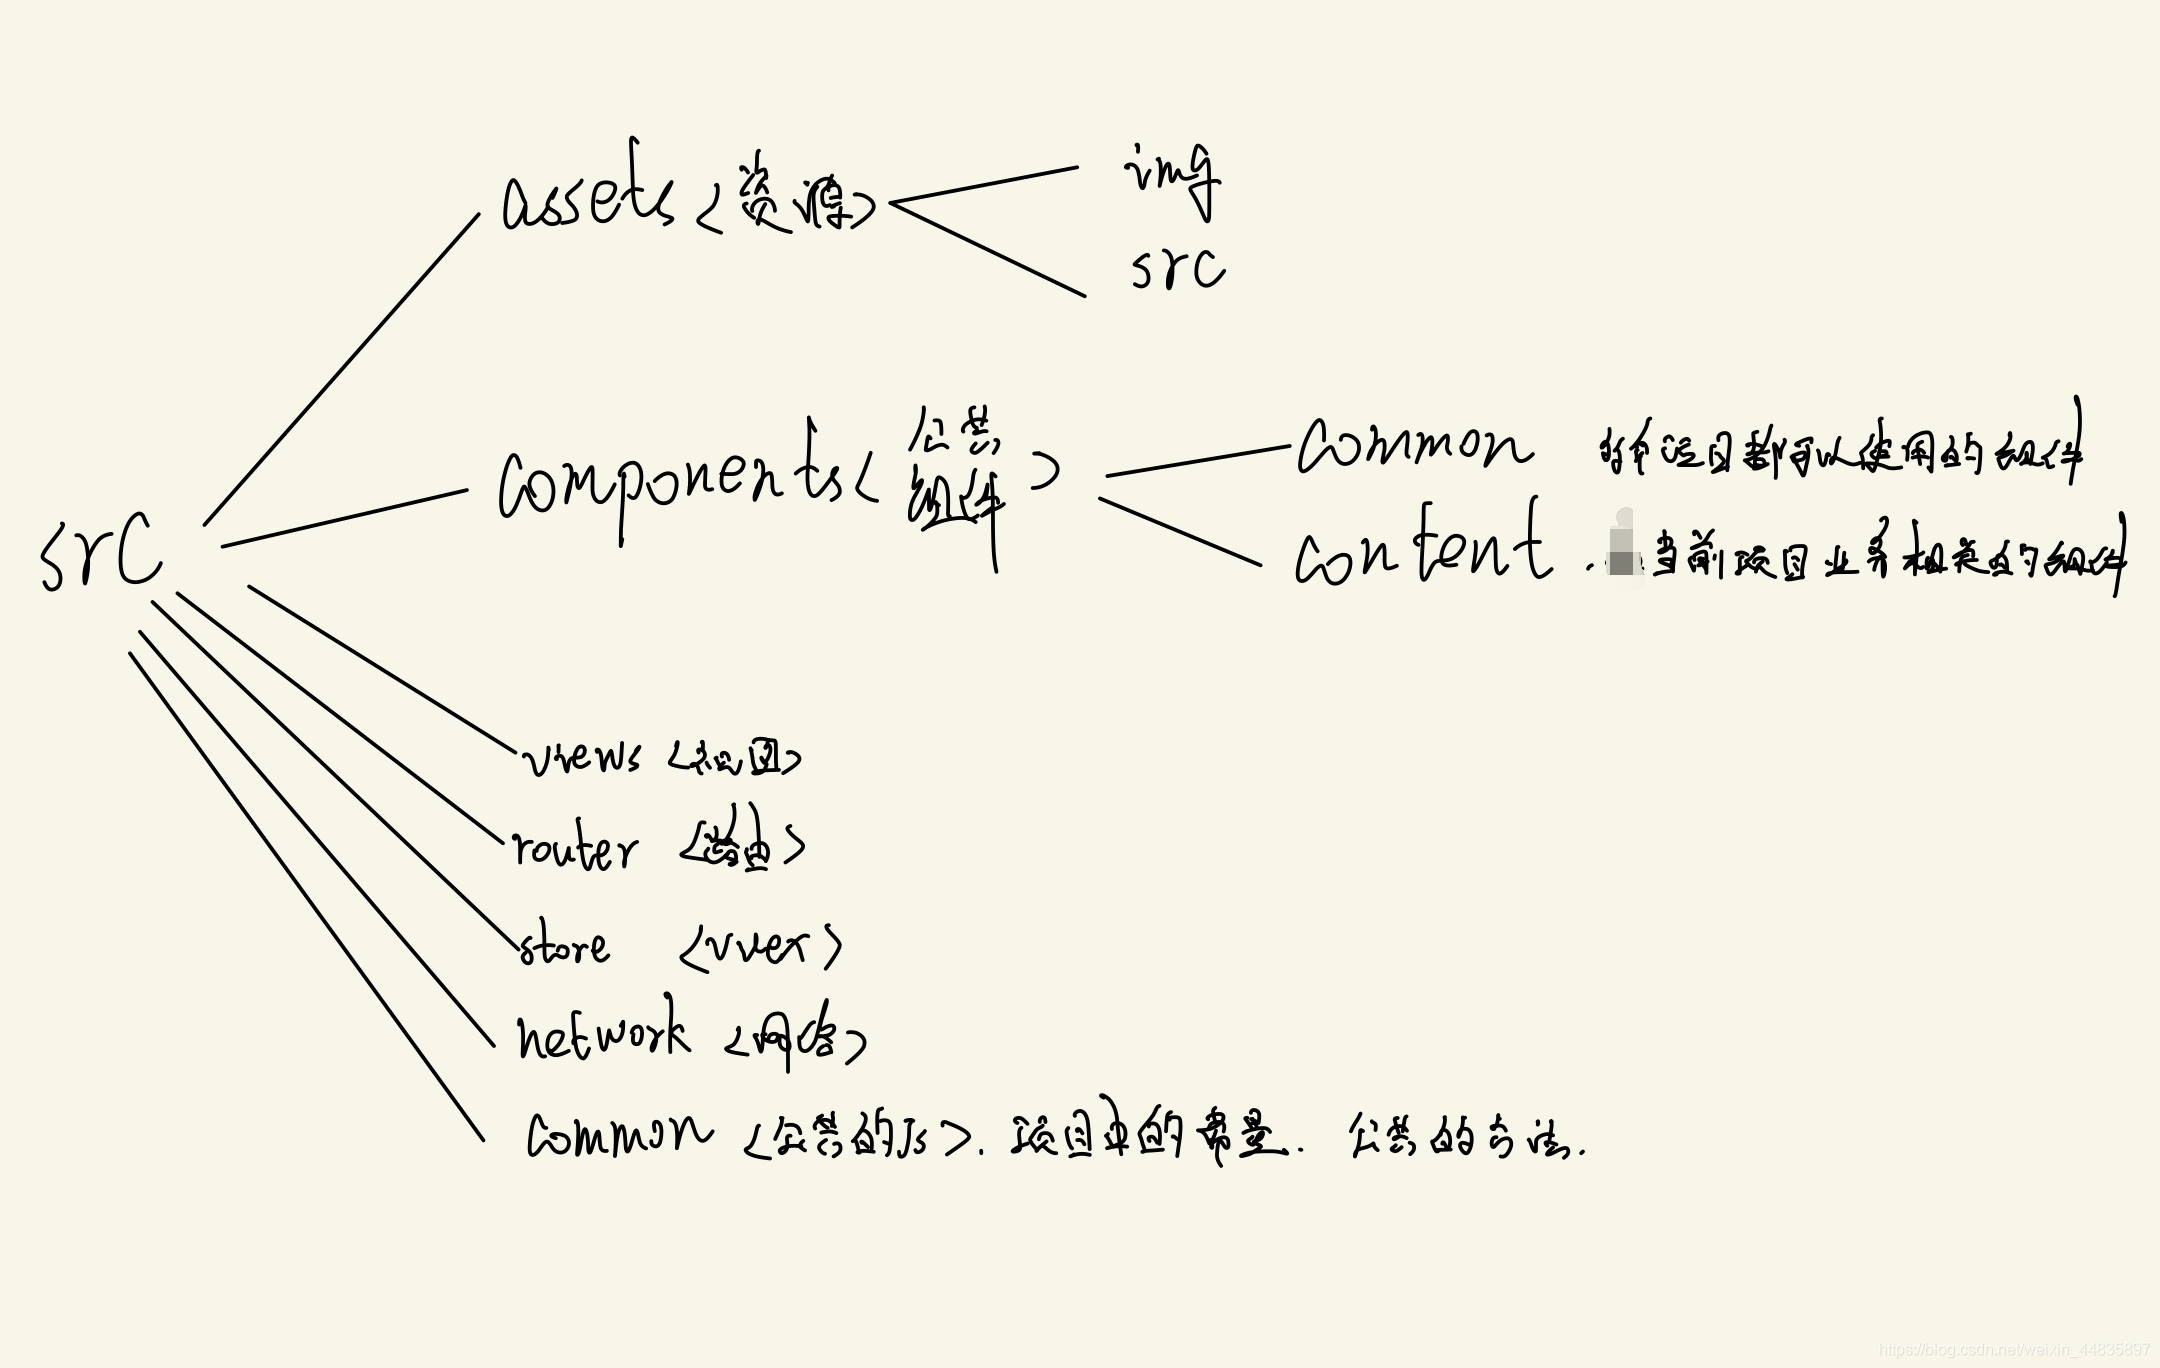 assets <资源>
img
src
components <公共组件>
common 所有项目都可以使用的组件
content . 当前项目业务相关的组件
src
views <视图>
router <路由>
store <vuex>
network <网络>
common <公共的Js>. 项目中的常量. 公共的方法.
https://blog.csdn.net/weixin_44835897